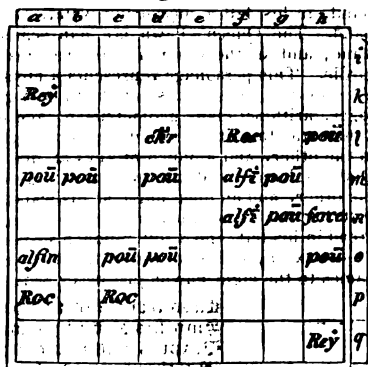 a b c d e f g h
i
Reẏ k
cħr Roc poū l
poū poū poū alfi poū m
alfi poū force n
alfin poū poū poū o
Roc Roc p
Reẏ q